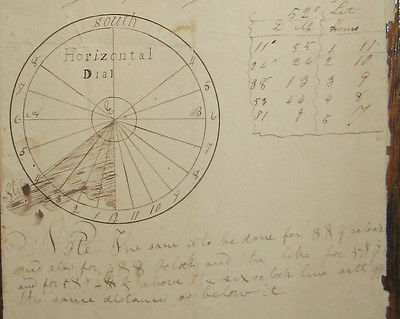 South
Horizontal
Dial
52° Lat
D M Hours
11° 55 1 11
24° 26 2 10
38 13 3 9
53 44 4 8
71 9 5 7
8 7 6 5 4 3 2 1 12 11 10 9 8 7 6 5 4
A B
C
Note The same is to be done for 3 & 9 oclock
and also for 4 & 8 Oclock and the like for 5 & 7
and for 5 & 7 4 & 8 above the six oclock line sett off
the same distance as below it